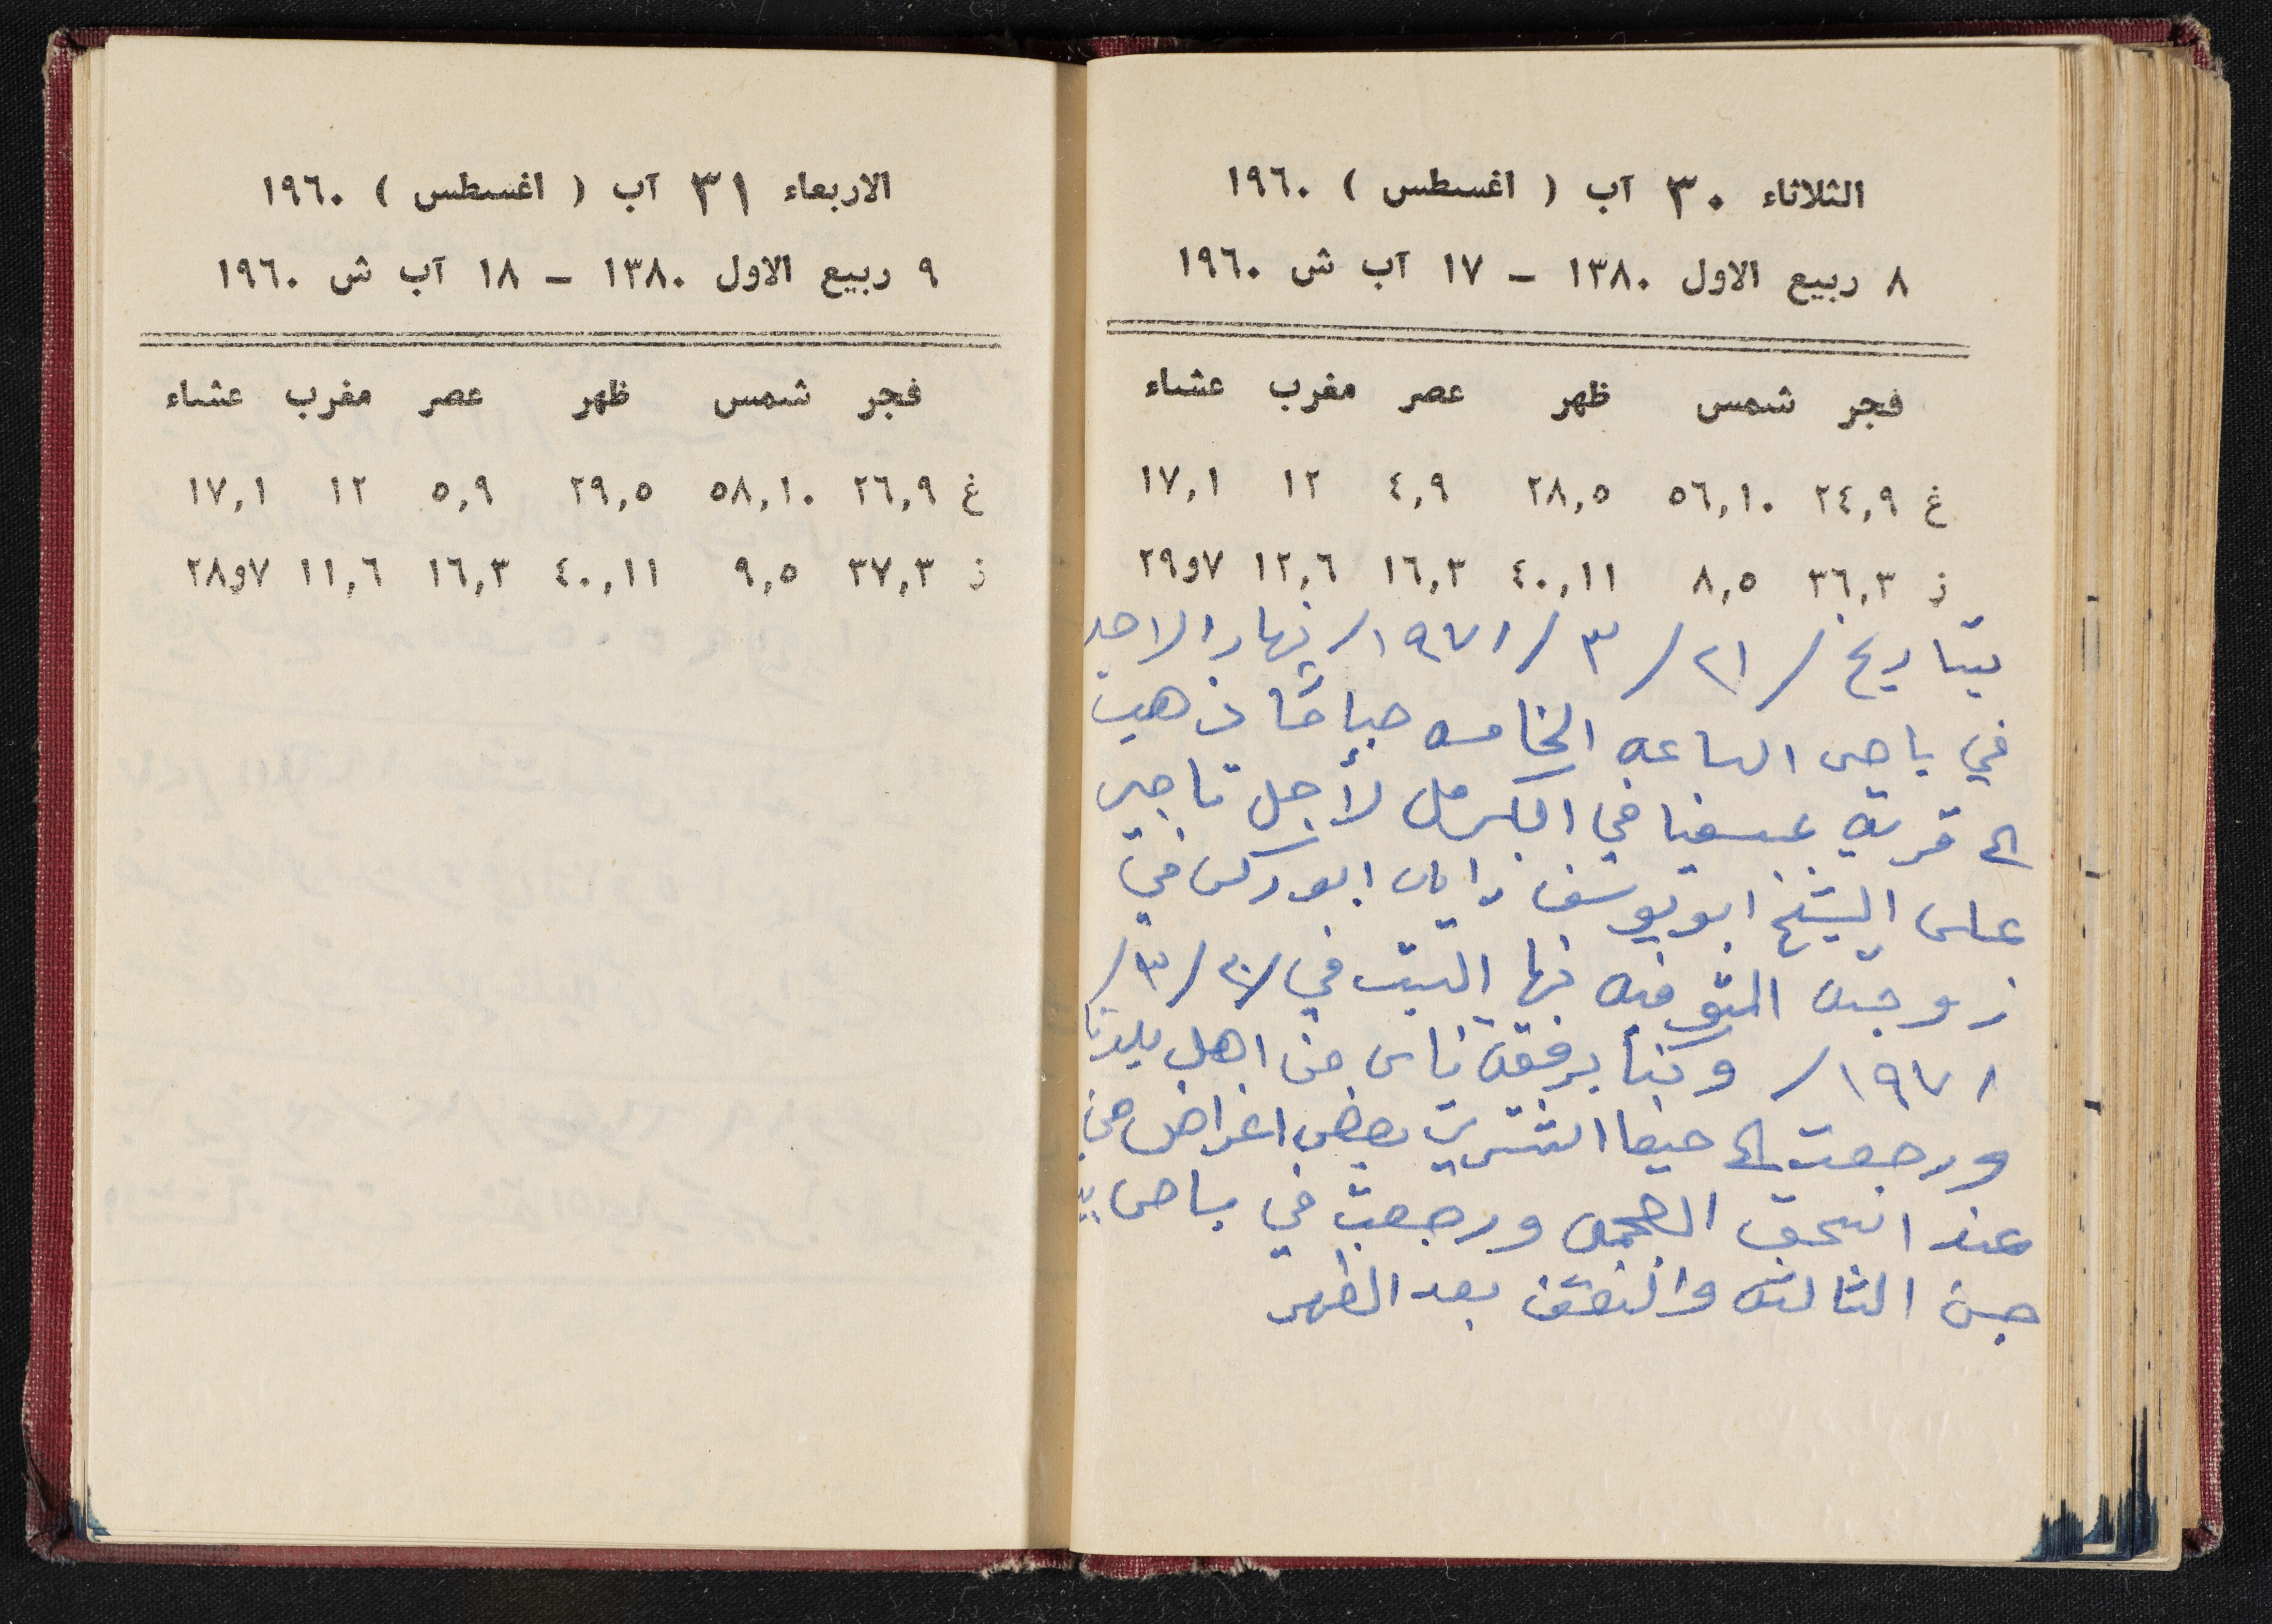 الثلاثاء ٣٠ آب ( اغسطس ) ١٩٦٠
٨ ربيع الاول ١٣٨٠ - ١٧ آب ش ١٩٦٠
فجر شمس ظهر عصر مغرب عشاء
غ ٢٤,٩ ٥٦,١٠ ٢٨,٥ ٤,٩ ١٢ ١٧,١
ز ٣٦,٣ ٨,٥ ٤٠,١١ ١٦,٣ ١٢,٦ ٧و٢٩
بتاريخ / ٢١ / ٣ / ١٩٧١ / نهار الاحد
في باص الساعه الخامسه صباحًا ذهبت
الى قرية عسفيا في الكرمل لأجل تأجير
على الشيخ ابو يوسف ابو ركن في
زوجته المتوفيه نهار السبت في / ٢٠ / ٣ /
١٩٧١ / وكنا برفقة ناس من اهل بلدنا
ورجعت الى حيفا اشتريت بعض اغراض من
عند اسحق ورجعت في باص
الثالثه والنصف بعد الظهر
الاربعاء ٣١ آب ( اغسطس ) ١٩٦٠
٩ ربيع الاول ١٣٨٠ - ١٨ آب ش ١٩٦٠
فجر شمس ظهر عصر مغرب عشاء
غ ٢٦,٩ ٥٨,١٠ ٢٩,٥ ٥,٩ ١٢ ١٧,١
ز ٣٧,٣ ٩,٥ ٤٠,١١ ١٦,٣ ١١,٦ ٧و٢٨